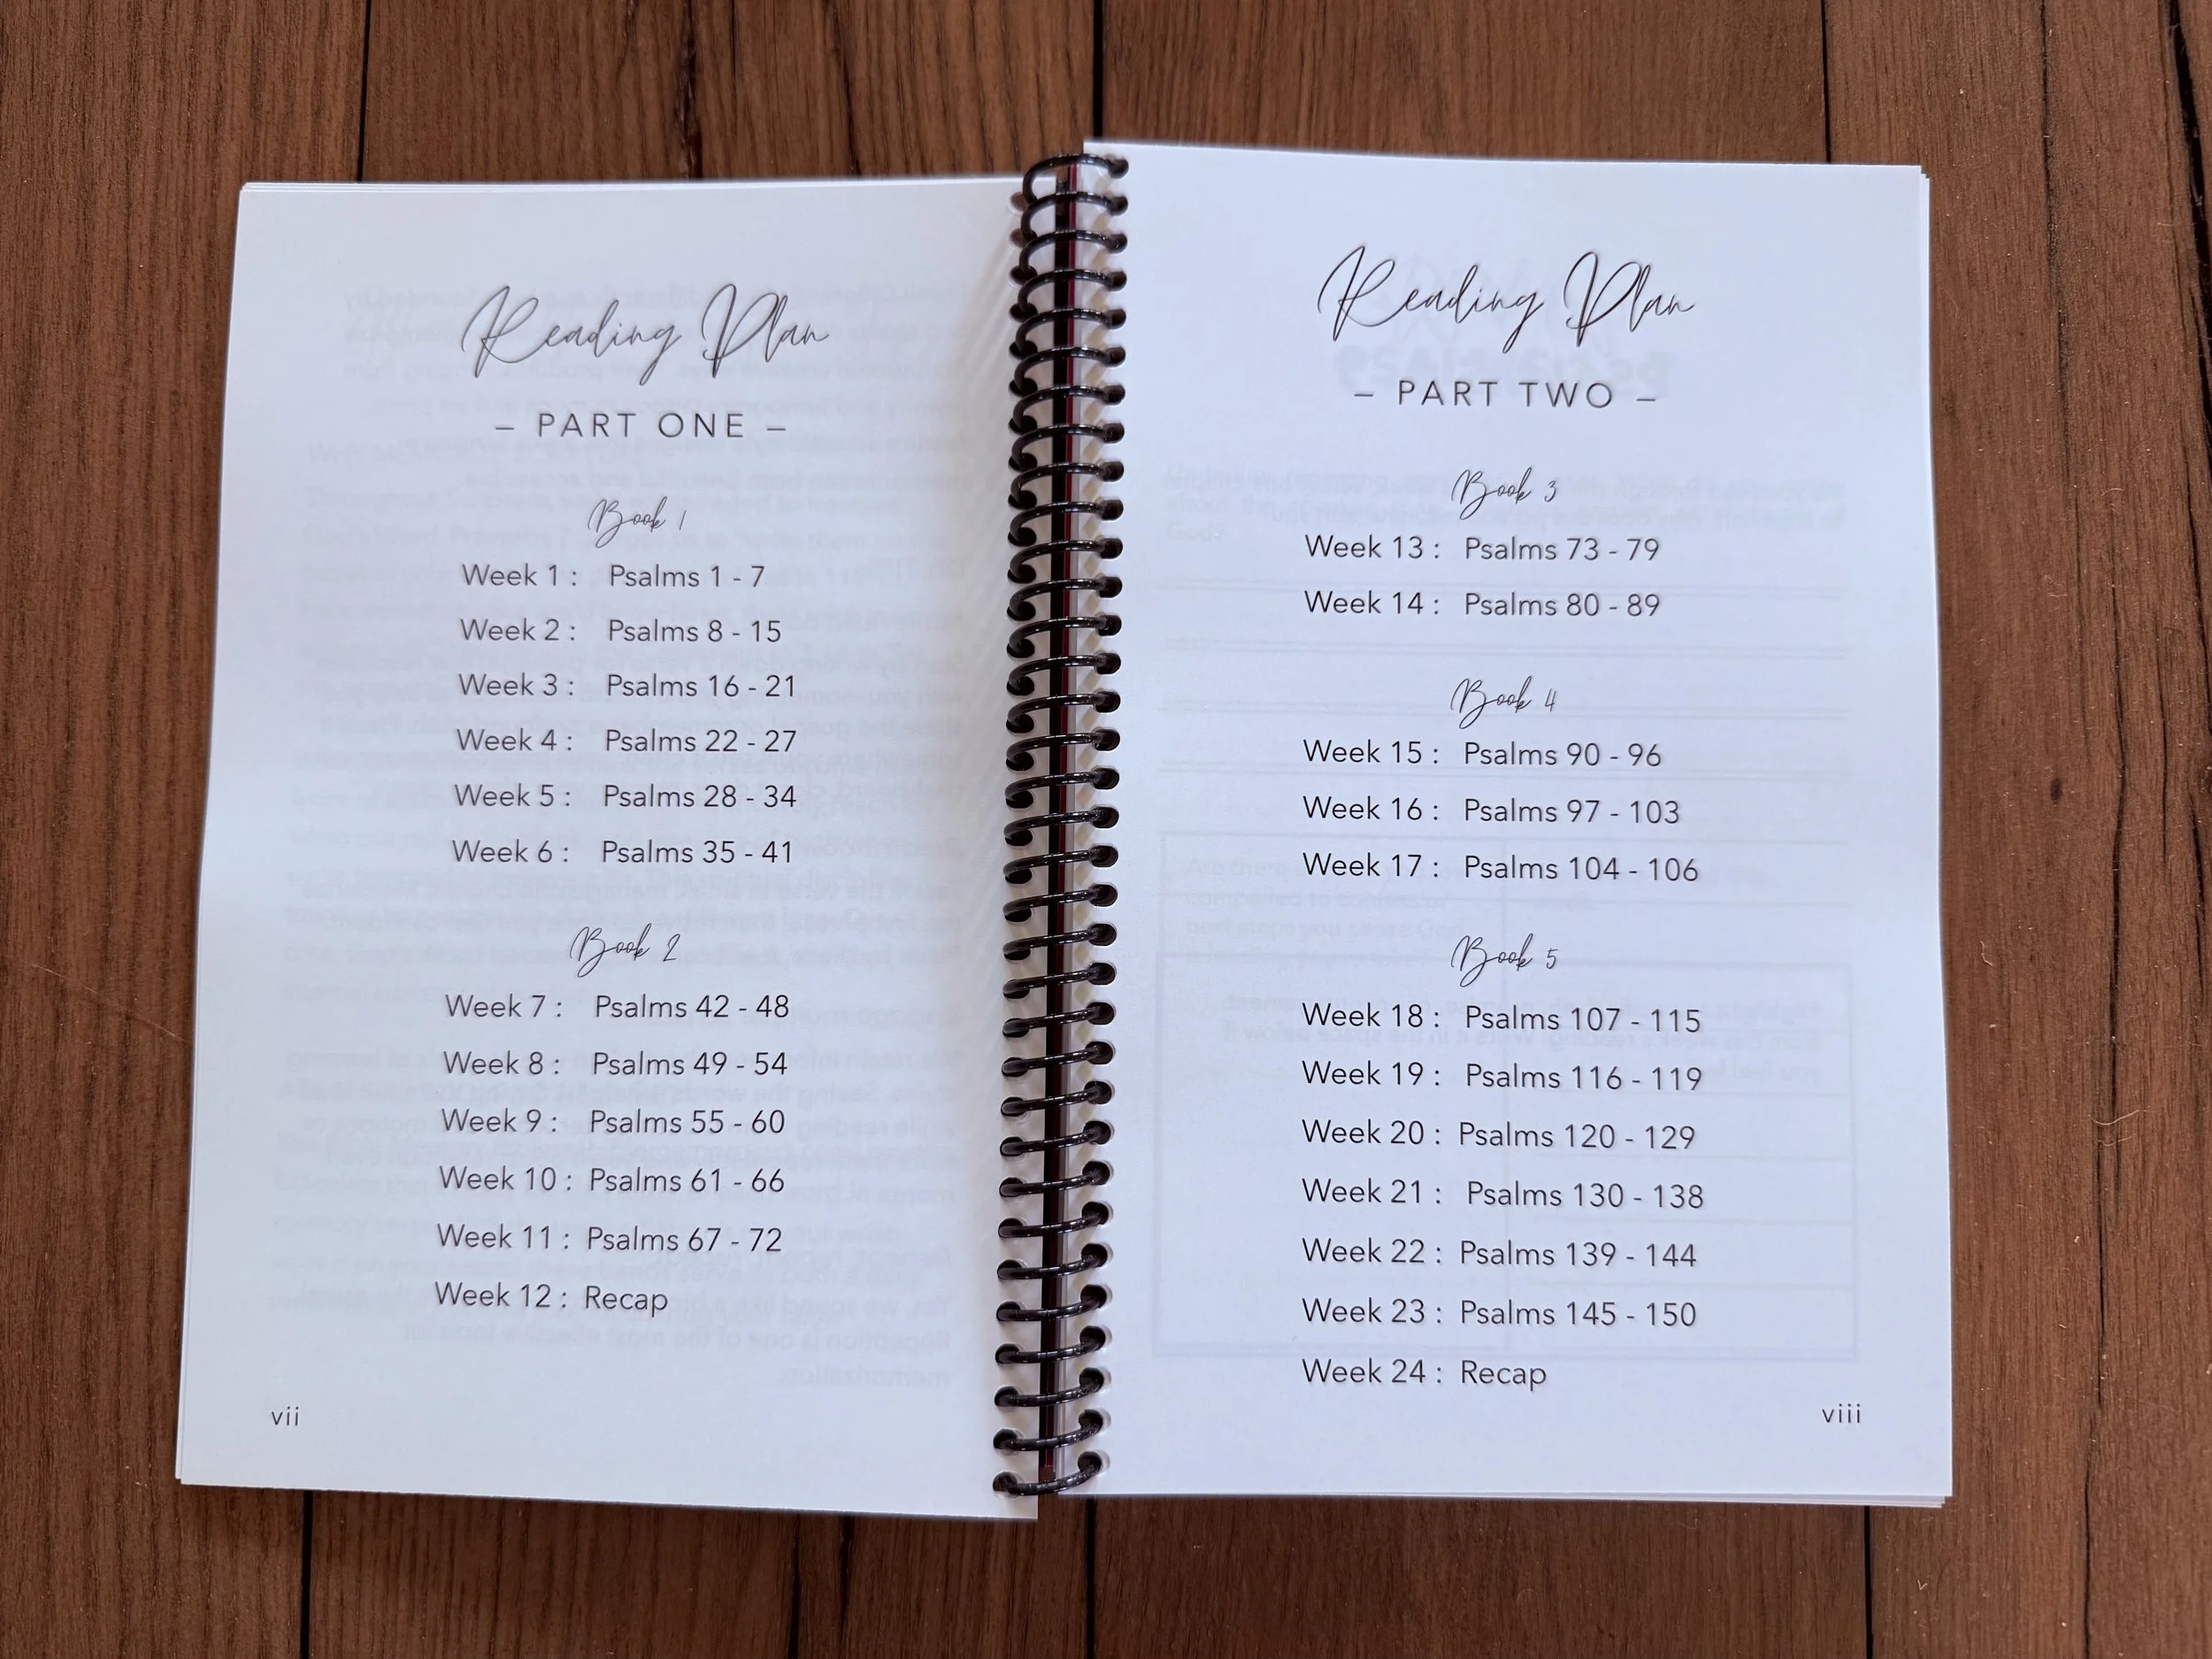 Reading Plan
– PART ONE –
Book 1
Week 1 : Psalms 1 - 7
Week 2 : Psalms 8 - 15
Week 3 : Psalms 16 - 21
Week 4 : Psalms 22 - 27
Week 5 : Psalms 28 - 34
Week 6 : Psalms 35 - 41
Book 2
Week 7 : Psalms 42 - 48
Week 8 : Psalms 49 - 54
Week 9 : Psalms 55 - 60
Week 10 : Psalms 61 - 66
Week 11 : Psalms 67 - 72
Week 12 : Recap
vii
Reading Plan
– PART TWO –
Book 3
Week 13 : Psalms 73 - 79
Week 14 : Psalms 80 - 89
Book 4
Week 15 : Psalms 90 - 96
Week 16 : Psalms 97 - 103
Week 17 : Psalms 104 - 106
Book 5
Week 18 : Psalms 107 - 115
Week 19 : Psalms 116 - 119
Week 20 : Psalms 120 - 129
Week 21 : Psalms 130 - 138
Week 22 : Psalms 139 - 144
Week 23 : Psalms 145 - 150
Week 24 : Recap
viii